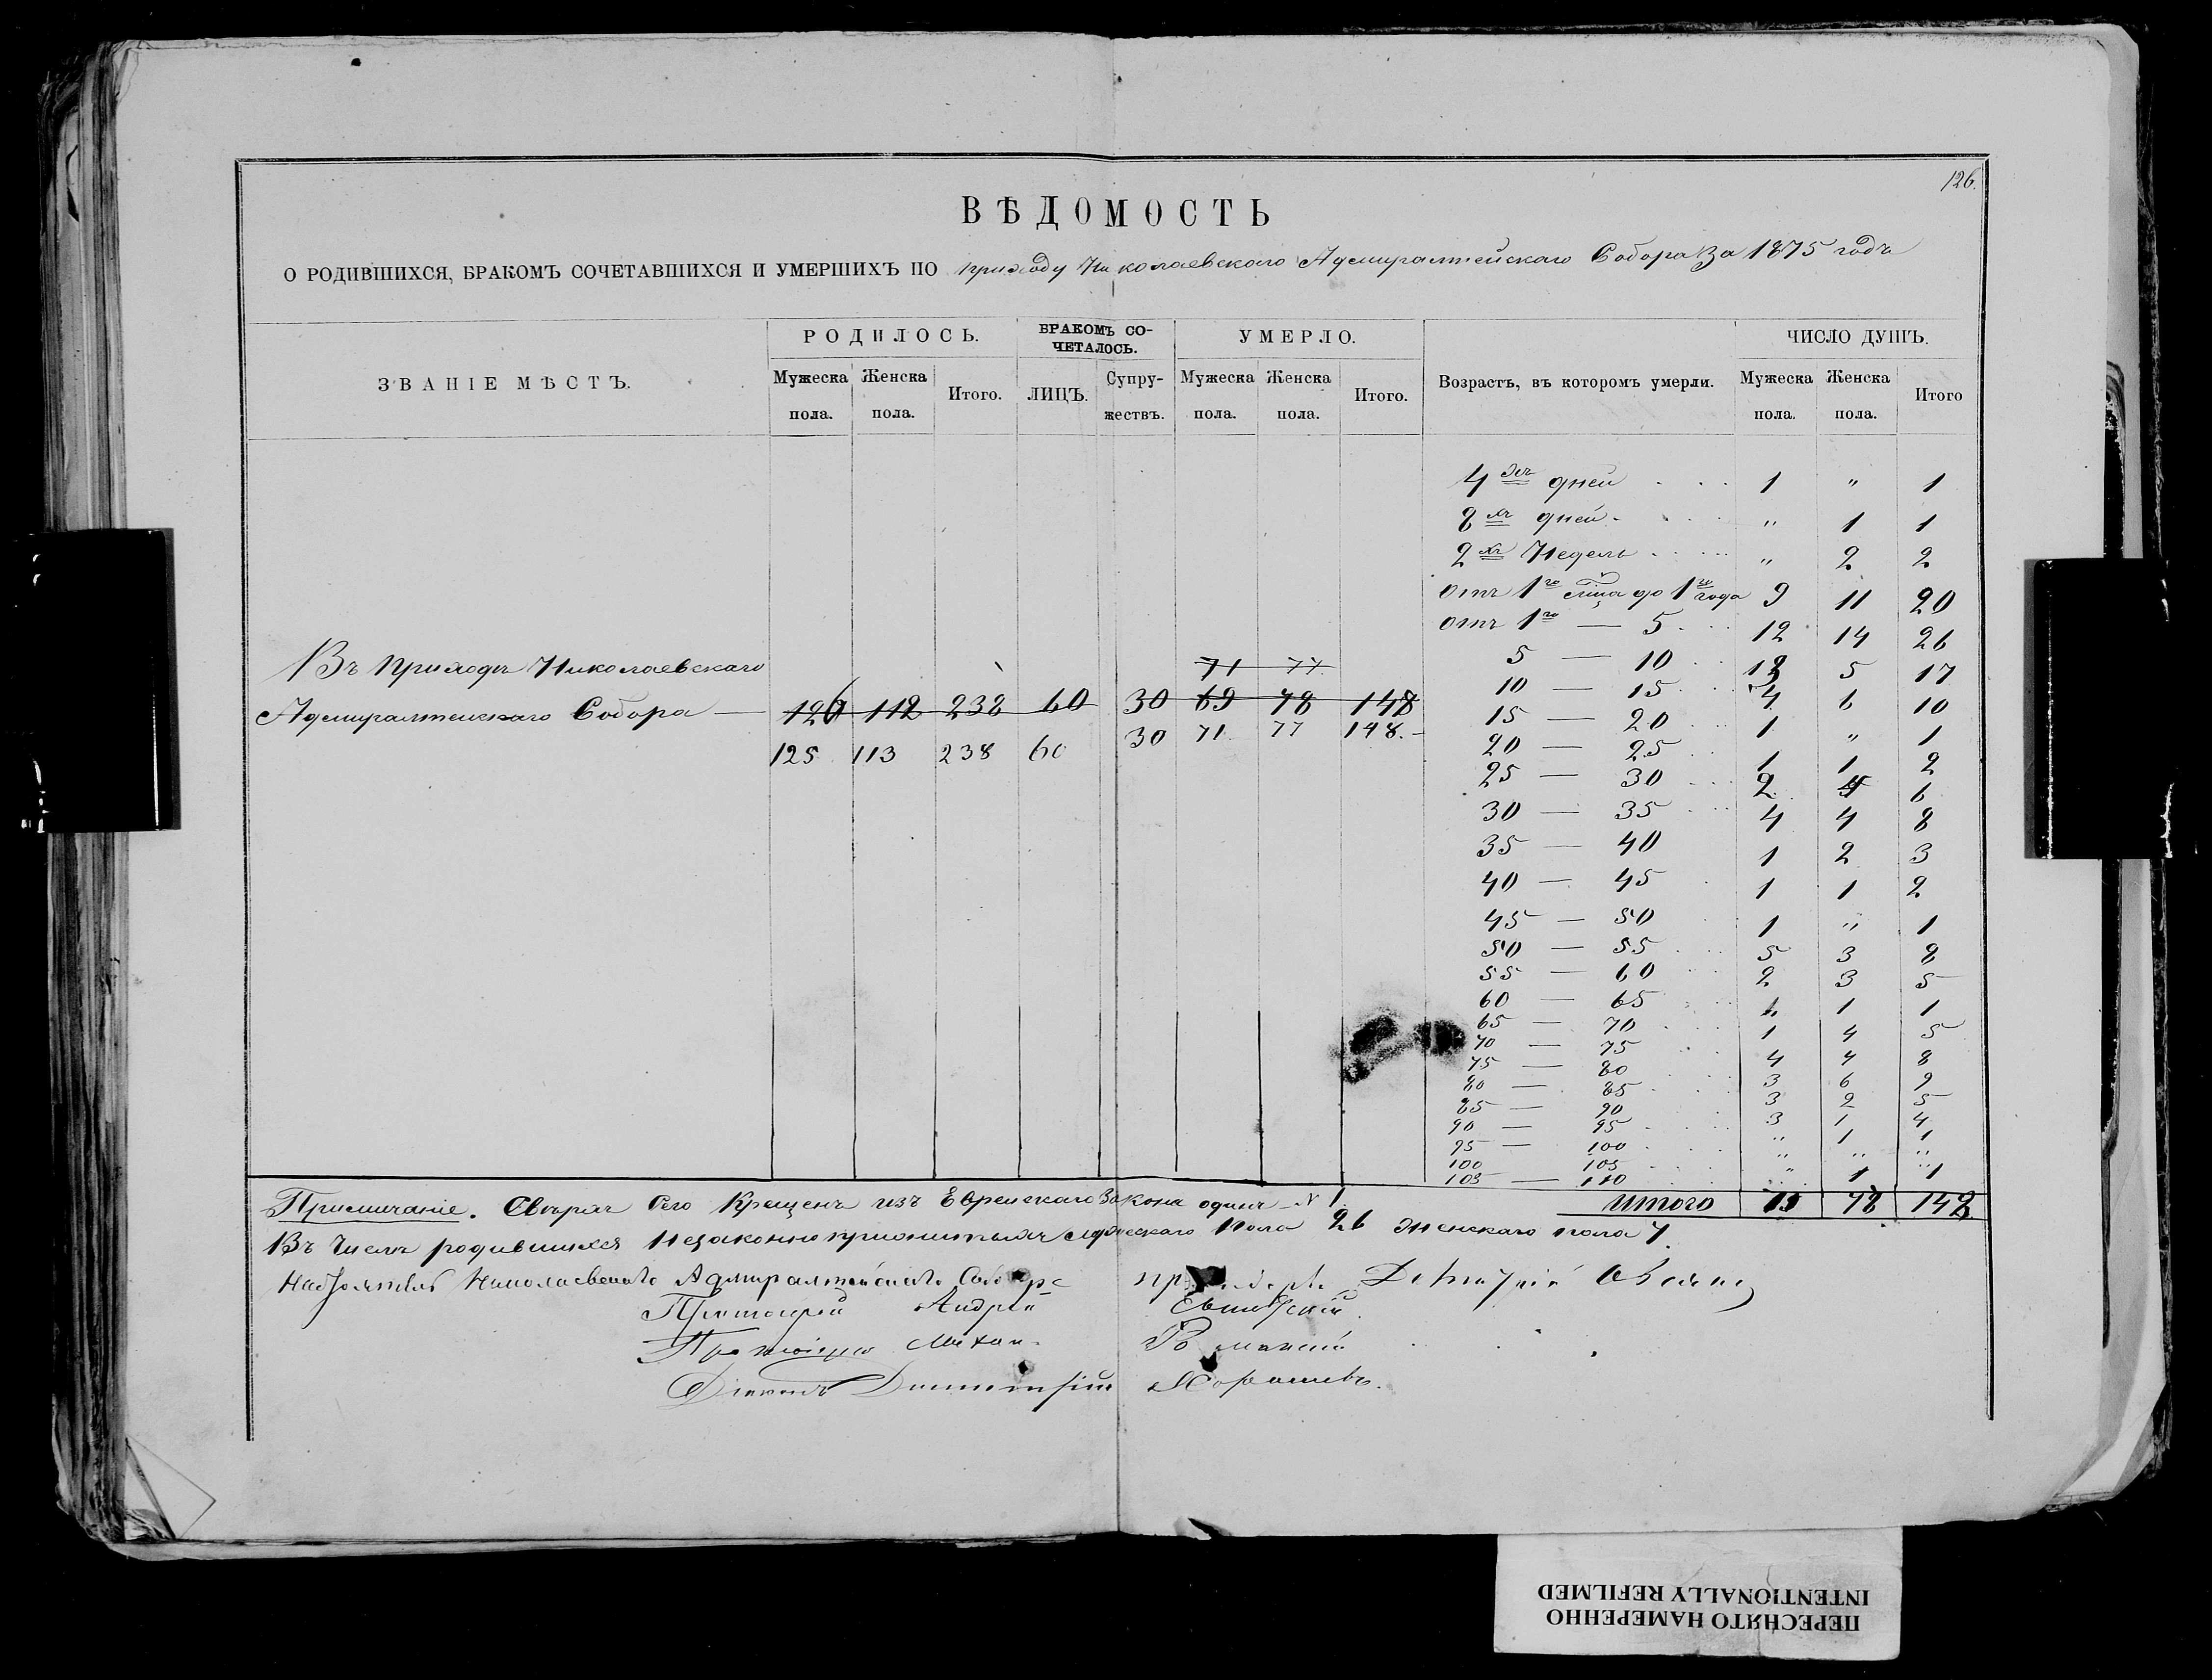 126.
ВѢДОМОСТЬ
О РОДИВШИХСЯ, БРАКОМЪ СОЧЕТАВШИХСЯ И УМЕРШИХЪ ПО приходу Николаевскаго Адмиралтейскаго Собора за 1875 годъ
ЗВАНІЕ МѢСТЪ.
РОДИЛОСЬ.
Мужеска пола.
Женска пола.
Итого.
БРАКОМЪ СО-
ЧЕТАЛОСЬ.
ЛИЦЪ.
Супру-
жествъ.
УМЕРЛО.
Мужеска пола.
Женска пола.
Итого.
Возрастъ, въ которомъ умерли.
ЧИСЛО ДУШЪ.
Мужеска пола.
Женска пола.
Итого
Въ приходѣ Николаевскаго
71 77
Адмиралтейскаго Собора — 126 112 238 60 30 69 78 148
125 113 238 60 30 71 77 148.
4хъ дней 1 " 1
8 дней " 1 1
2хъ Недель " 2 2
отъ 1го мца до 1го года 9 11 20
отъ 1го — 5 12 14 26
5 — 10 12 5 17
10 — 15 4 6 10
15 — 20 1 " 1
20 — 25 1 1 2
25 — 30 2 4 6
30 — 35 4 4 8
35 — 40 1 2 3
40 — 45 1 1 2
45 — 50 1 " 1
50 — 55 5 3 8
55 — 60 2 3 5
60 — 65 " 1 1
65 — 70 1 4 5
70 — 75 4 4 8
75 — 80 3 6 9
80 — 85 3 2 5
85 — 90 3 1 4
90 — 95 " 1 1
95 — 100 " " "
100 105
105 — 110 " 1 1
Итого 78 148
Примичаніе. Сверхъ Сего Крещенъ изъ Еврейскаго Закона одинъ – N 1.
Въ Числѣ родившихся Незаконноприжитыхъ мужескаго пола 26 женскаго пола 7.
Настоятель Николаевскаго Адмиралтейскаго Собора
Протоіерей Андрей
Протоіерей Михаи
Діаконъ
ПЕРЕСНЯТО НАМЕРЕННО
INTENTIONALLY REFILMED